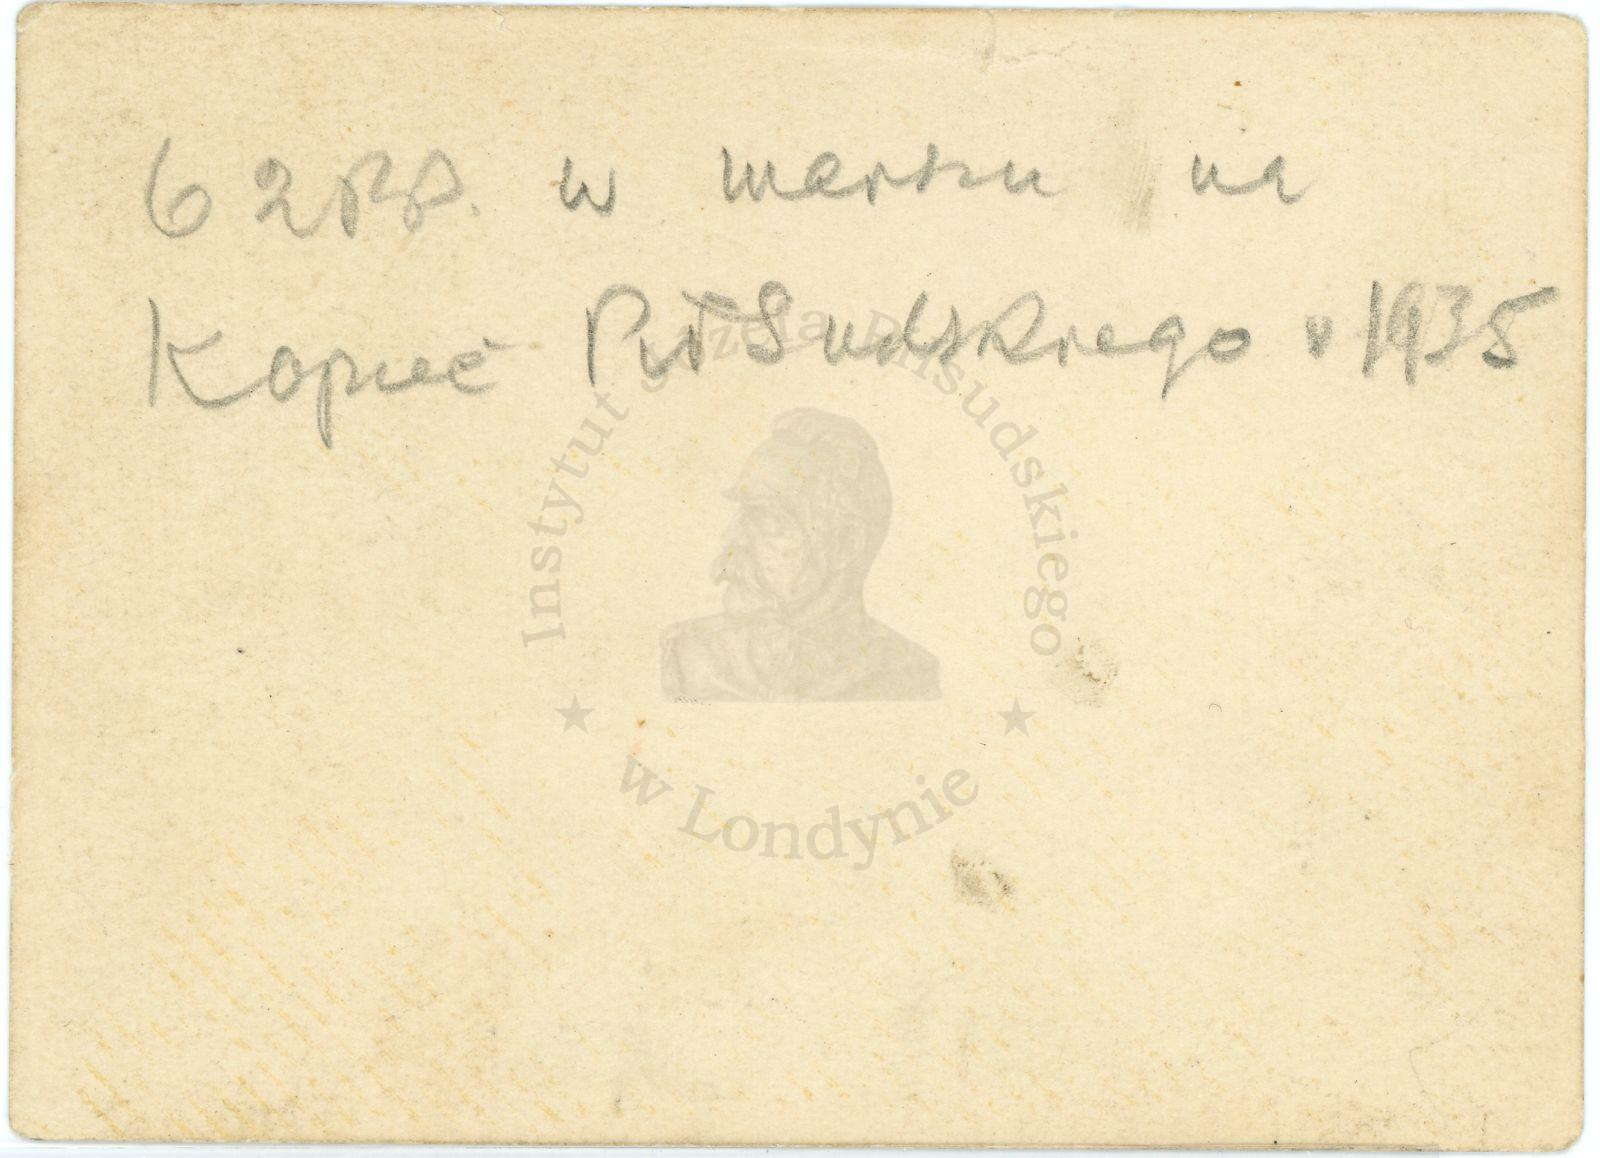 62 p.p. w marszu na
Kopiec Piłsudskiego w 1935
Instytut Józefa Piłsudskiego
w Londynie